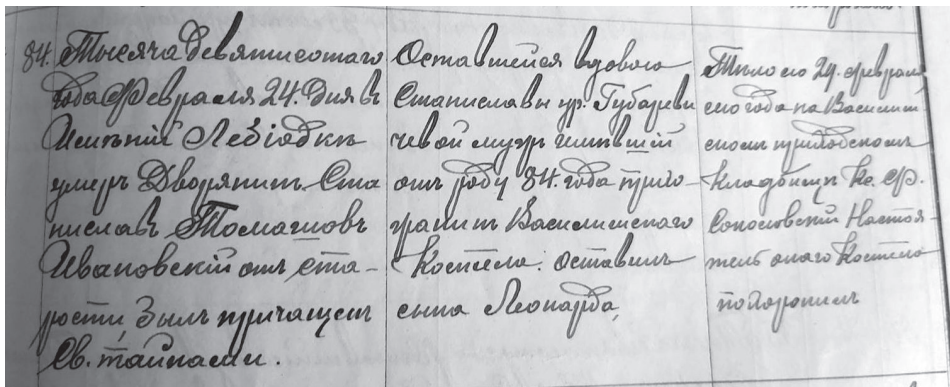 84. Тысяча девятисотаго
года Февраля 24. дня въ
Имѣніи Лебіодкѣ
умеръ Дворянинъ Ста
ниславъ Томашовъ
Ивановскій отъ ста-
рости, былъ причащенъ
Св. тайнами.
Оставшейся вдовою
Станиславы ур. Губареви
чевой мужъ имѣвшій
отъ роду 84. года прихо-
жанинъ Василишскаго
Костела. оставилъ
сына Леонарда,
Тѣло его 29. февраля
сего года на Василиш
скомъ приходскомъ
кладбищѣ Кс. Ф.
Сопоцковскій Настоя-
тель онаго Костела
похоронилъ